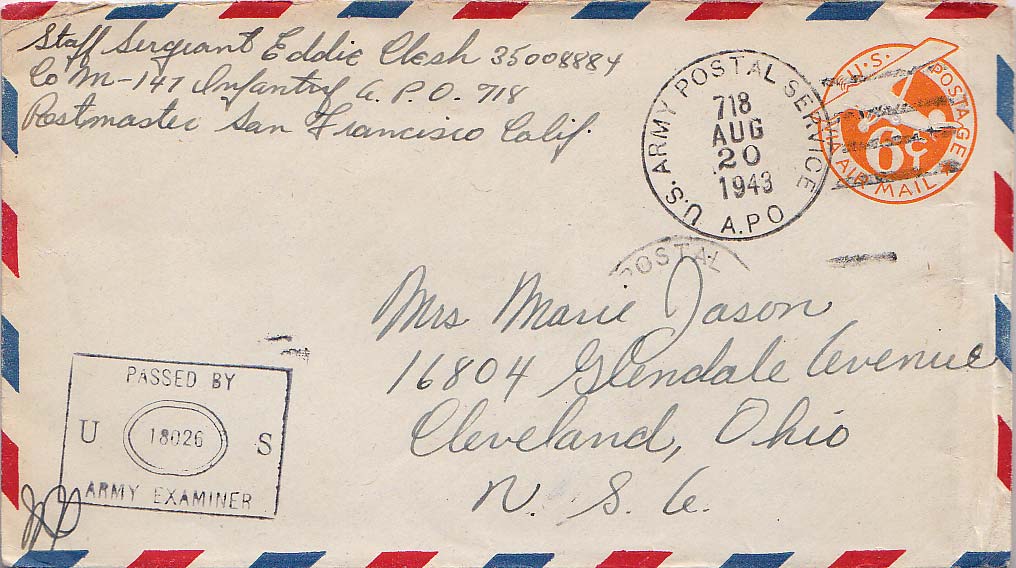 Staff Sergeant Eddie Clesh 35008884
Co M-147 Infantry A. P. O. 718
Postmaster San Francisco Calif.
U.S. ARMY POSTAL SERVICE
718
AUG
20
1943
A.P.O
U.S. POSTAGE
6¢
AIR MAIL
POSTAL
Mrs Marie Jason
16804 Glendale Avenue
Cleveland, Ohio
U. S. A.
PASSED BY
U 18026 S
ARMY EXAMINER